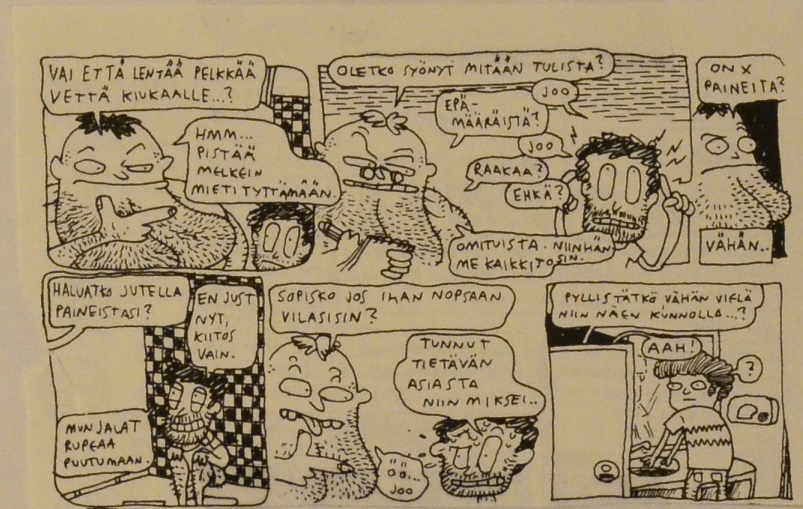 VAI ETTÄ LENTÄÄ PELKKÄÄ
VETTÄ KIUKAALLE...?
HMM...
PISTÄÄ
MELKEIN
MIETITYTTÄMÄÄN.
OLETKO SYÖNYT MITÄÄN TULISTA?
JOO
EPÄ-
MÄÄRÄISTÄ?
JOO
RAAKAA?
EHKÄ?
OMITUISTA. NIINHÄN
ME KAIKKI TOSIN.
ON X
PAINEITA?
VÄHÄN..
HALUATKO JUTELLA
PAINEISTASI?
EN JUST
NYT,
KIITOS
VAIN.
MUN JALAT
RUPEAA
PUUTUMAAN.
SOPISKO JOS IHAN NOPSAAN
VILASISIN?
TUNNUT
TIETÄVÄN
ASIASTA
NIIN MIKSEI..
ÖÖ...
JOO
PYLLISTÄTKÖ VÄHÄN VIELÄ
NIIN NÄEN KUNNOLLA...?
AAH!
?